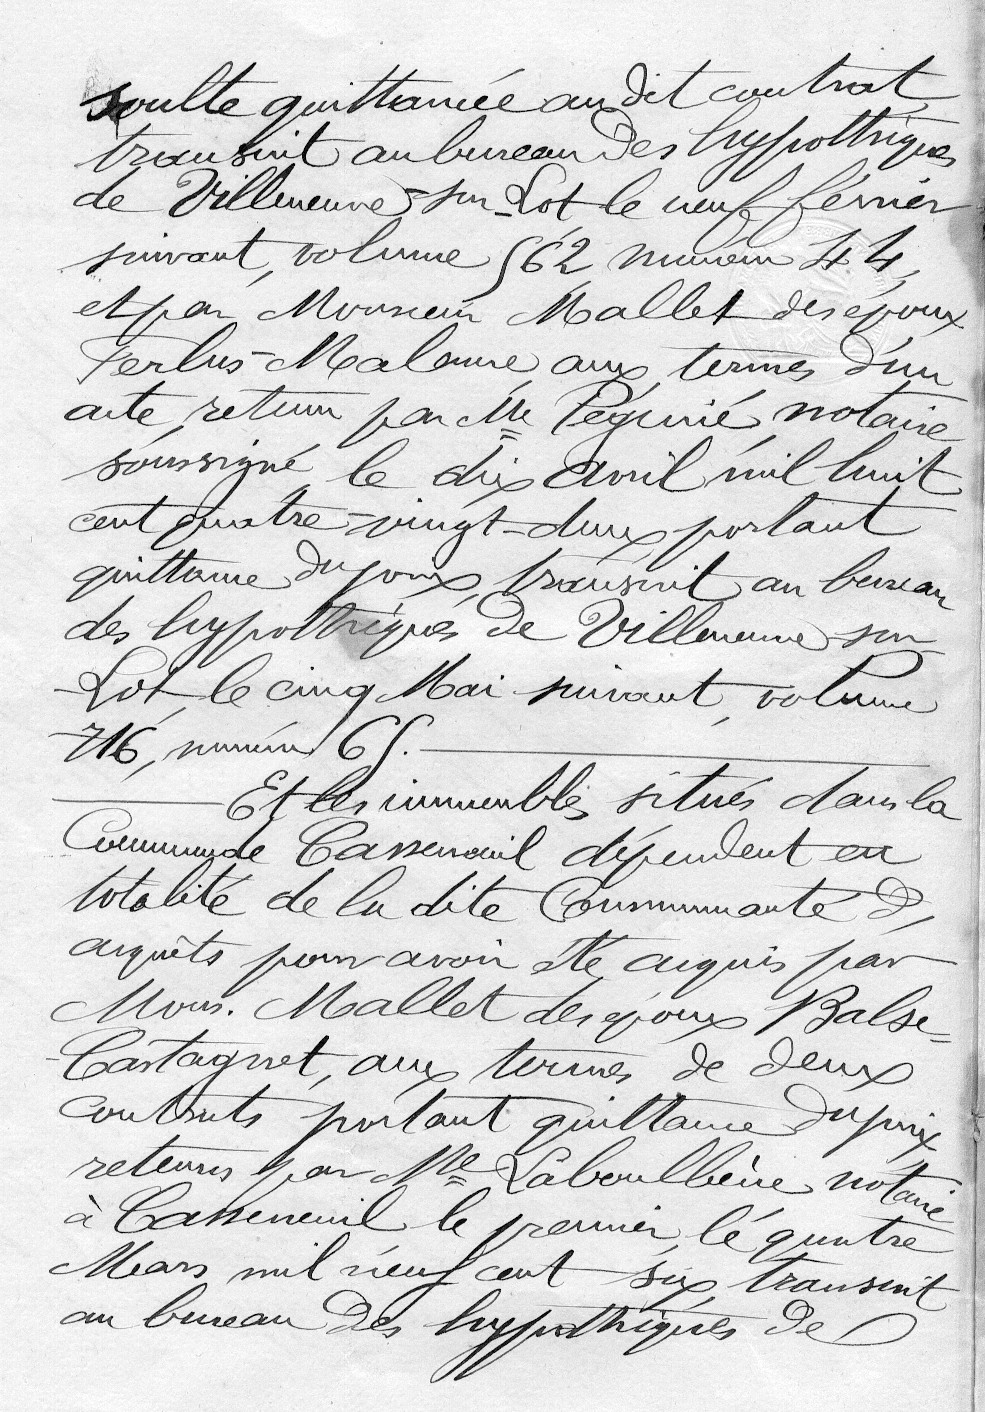 soulte quittancée au dit contrat
transcrit au bureau des hypothèques
de Villeneuve-sur-Lot le neuf février
suivant, volume 562 numéro 44,
et par Monsieur Mallet des époux
Ferlus-Malaure aux termes d'un
acte retenu par Me Péguvié notaire
soussigné le dix avril mil huit
cent quatre-vingt-deux portant
quittance du prix, transcrit au bureau
des hypothèques de Villeneuve-sur
-Lot le cinq Mai suivant, volume
716, numéro 65.
Et les immeubles situés dans la
Commune de Casseneuil dépendent en
totalité de la dite Communauté d,
acquêts pour avoir été acquis par
Mons. Mallet des époux Balse=
-Castagnet, aux termes de deux
contrats portant quittance du prix
retenus par Me Laboulbène notaire
à Casseneuil le premier, le quatre
Mars mil neuf cent six, transcrit
au bureau des hypothèques de